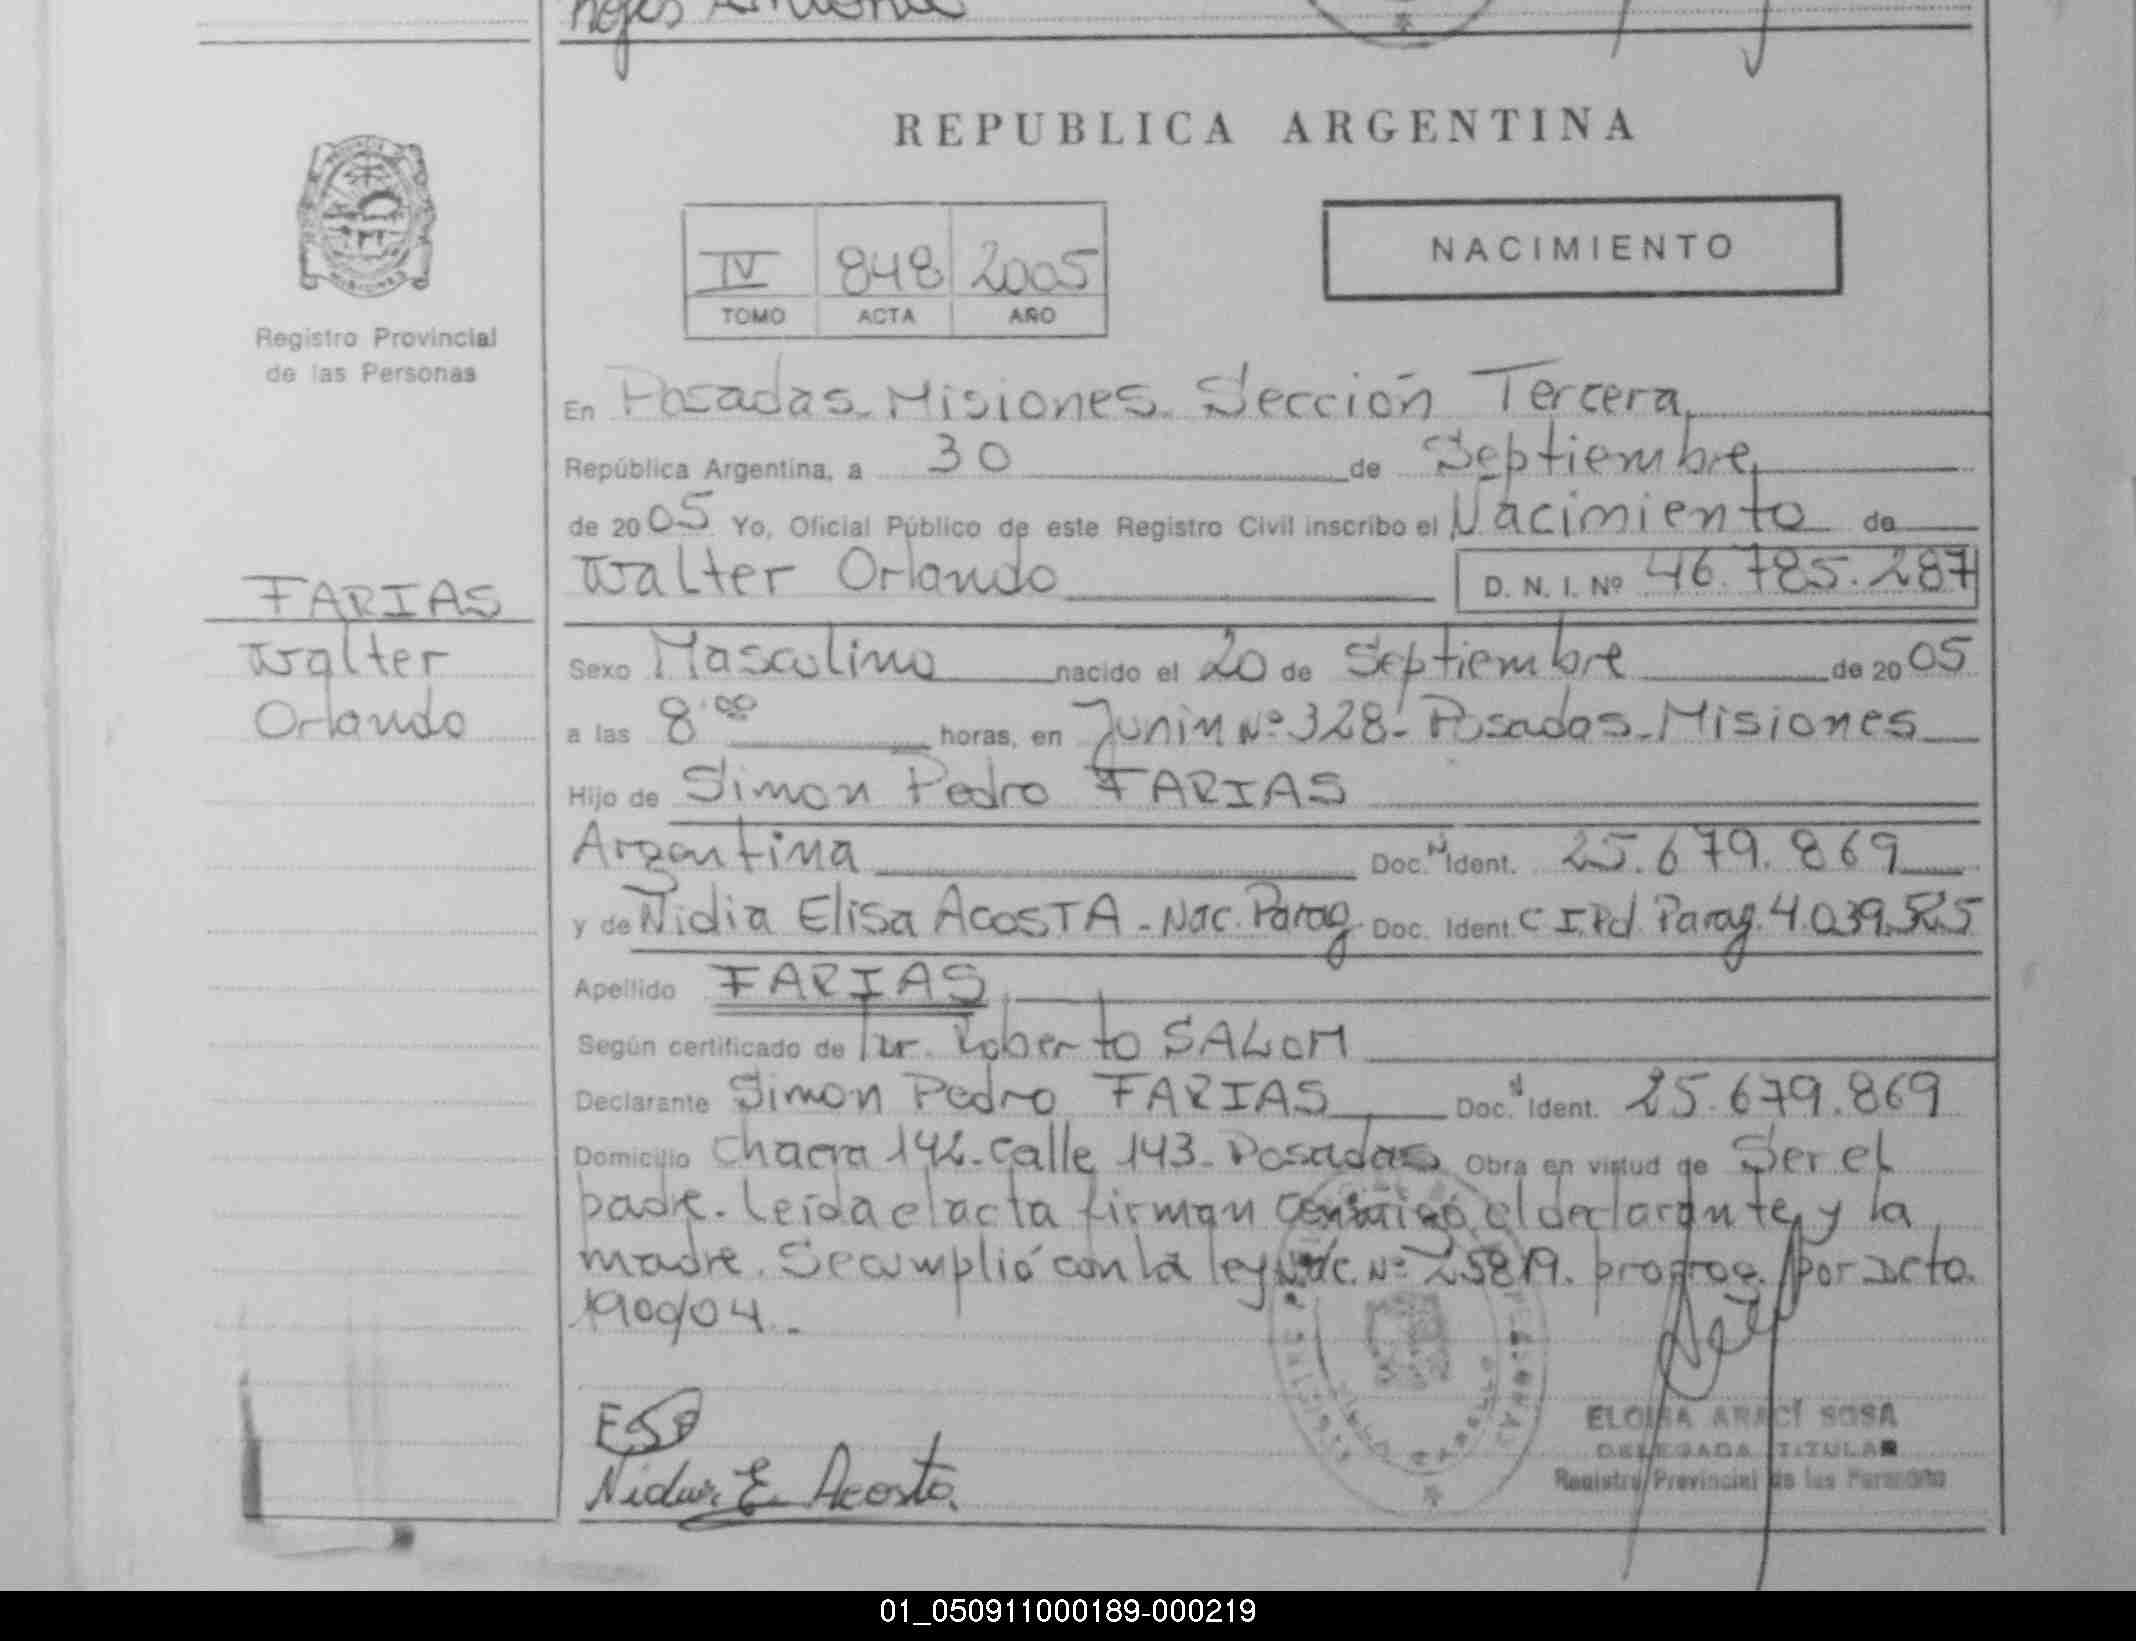 REPUBLICA ARGENTINA
NACIMIENTO
IV 848 2005
TOMO ACTA AÑO
Registro Provincial
de las Personas
FARIAS
Walter
Orlando
En Posadas - Misiones - Sección Tercera
República Argentina, a 30 de Septiembre
de 2005 Yo, Oficial Público de este Registro Civil inscribo el Nacimiento de
Walter Orlando D. N. I. Nº 46.785.287
Sexo Masculino nacido el 20 de Septiembre de 2005
a las 8:00 horas, en Junin Nº 328 - Posadas - Misiones
Hijo de Simon Pedro FARIAS
Argentina Doc. N Ident. 25.679.869
y de Nidia Elisa ACOSTA - Nac. Parag Doc. Ident. C I. Pol. Parag. 4.039.525
Apellido FARIAS
Según certificado de Dr. Roberto SALOM
Declarante Simon Pedro FARIAS Doc. N Ident. 25.679.869
Domicilio Chacra 142 - Calle 143 - Posadas Obra en virtud de Ser el
padre. Leída el acta firman conmigo el declarante y la
madre. Se cumplió con la ley Nac. Nº 25819. prorrog. por Dcto.
1900/04.-
Nidia E. Acosta.
ELOISA ARACÍ SOSA
DELEGADA TITULAR
Registro Provincial de las Personas
01_050911000189-000219